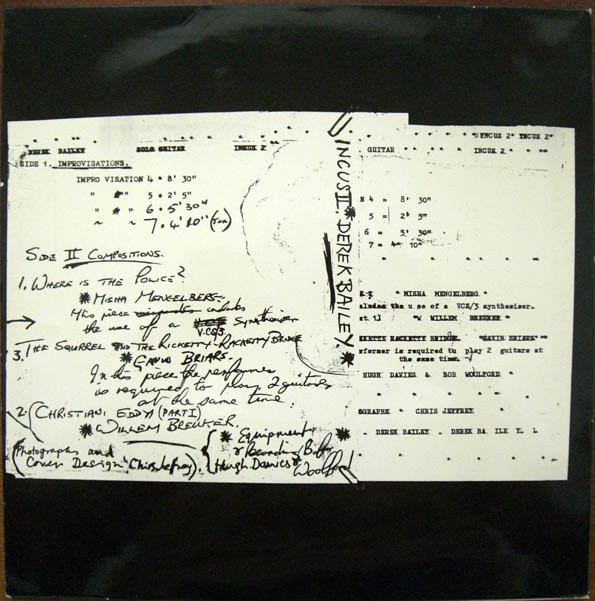 DEREK BAILEY SOLO GUITAR INCUS 2
SIDE 1. IMPROVISATIONS.
IMPRO VISATION 4 * 8' 30"
" * " 5 * 2' 5"
" * " 6 * 5' 30"
~ ~ 7 * 4' 10"
SIDE II COMPOSITIONS.
1. WHERE IS THE POLICE?
* MISHA MENGELBERG.
This piece includes
the use of a Synthesiser
V.CS3
3. THE SQUIRREL AND THE RICKETTY-RACKETTY BRIDGE
* GAVIN BRIARS.
In this piece the performer
is required to play 2 guitars
at the same time.
2. CHRISTIANI EDDY (PART I)
* WILLEM BREUKER.
(Photographs and
Cover Design Chris Jefray)
* Equipment
& Recording Bob
Hugh Davies & Woolford
INCUS II. * DEREK BAILEY. *
"INCUS 2" INCUS 2"
GUITAR INCUS 2
N 4 = 8' 30"
5 = 2' 5"
6 = 5' 30"
7 = 4' 10"
" MISHA MENGELBERG "
cludes the use of a VCS/3 synthesiser.
"W WILLEM BREUKER "
RACKETTE BRIDGE. "GAVIN BRIERS"
rformer is required to play 2 guitars at
the same time.
HUGH DAVIES & BOB WOOLFORD
OGRAPHS * CHRIS JEFFREY
. DEREK BAILEY . DEREK BA ILE Y. L